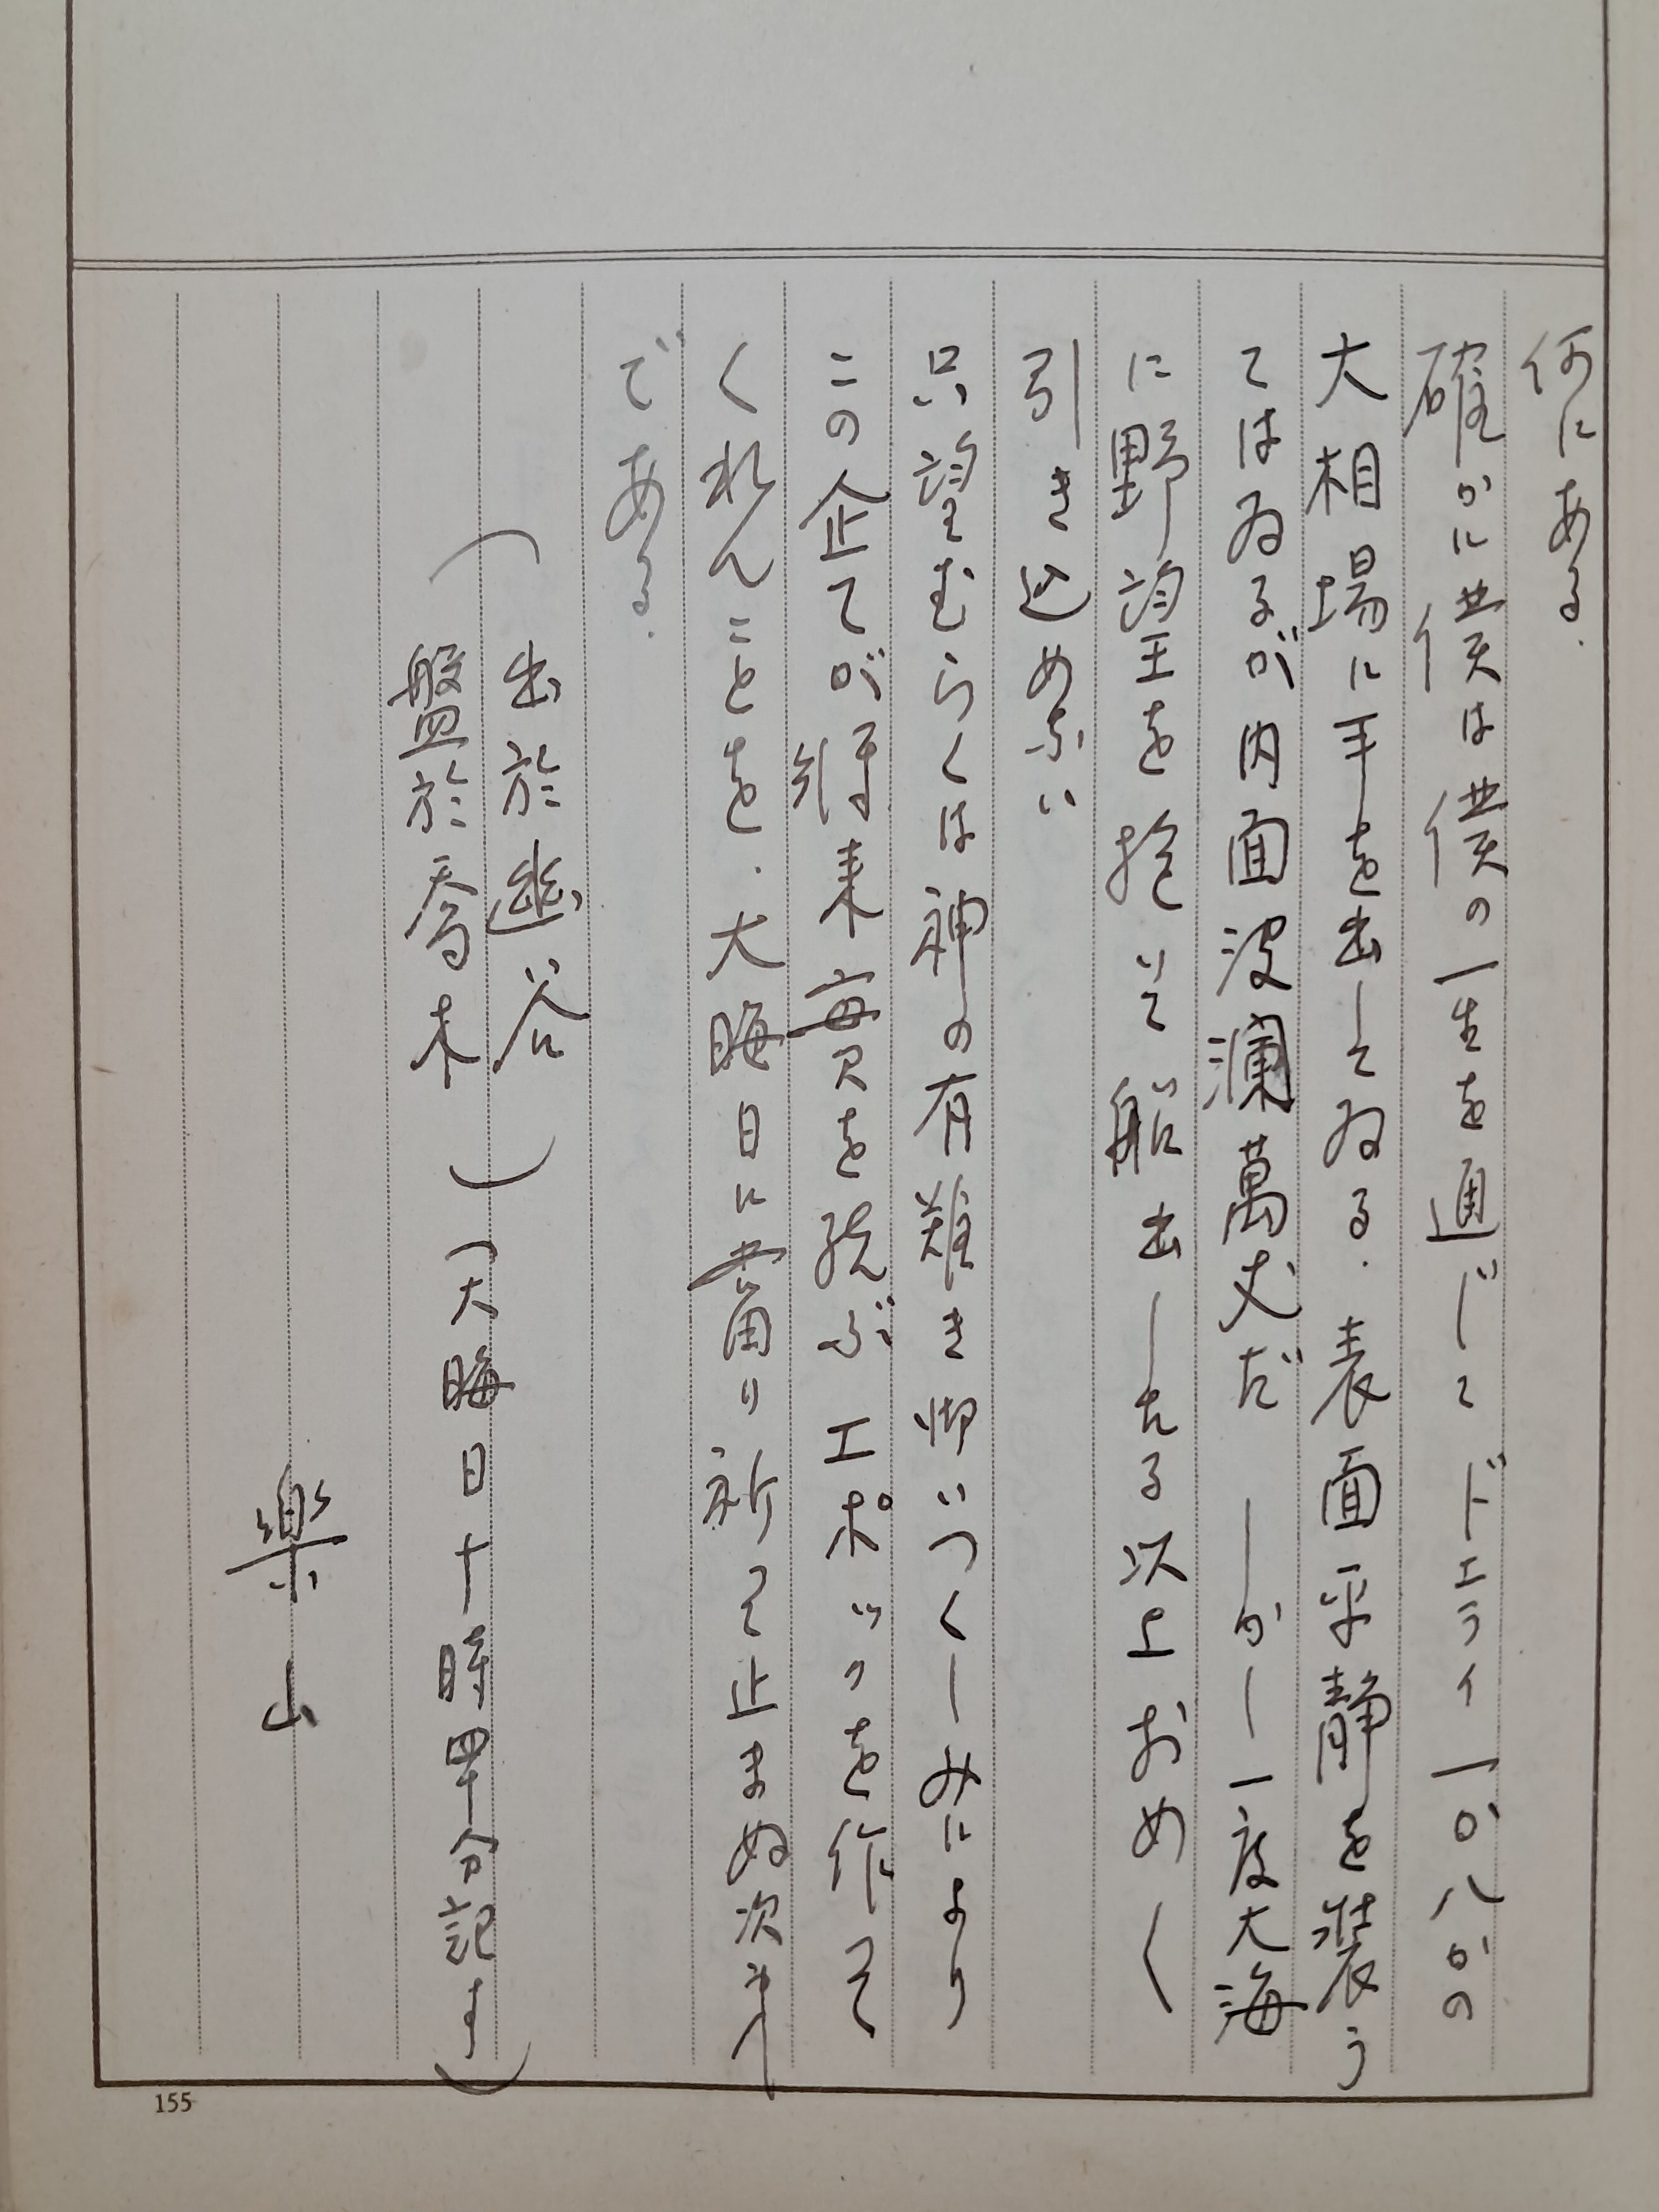 何にある.
確かに僕は僕の一生を通じてドエライ一か八かの
大相場に手を出してゐる.表面平静を装う
てはゐるが内面波瀾萬丈だ しかし一度大海
に野望を抱いて船出したる以上おめ〱
引き込めない
只望むらくは神の有難き御いつくしみにより
この企てが将来真を結ぶエポックを作って
くれんことを.大晦日に当り祈って止まぬ次第
である.
(出於幽谷
盤於喬木)(大晦日十一時四十分記す)
樂山
155